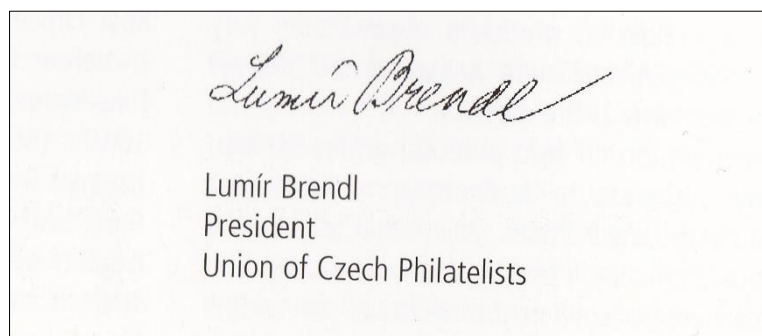 Lumír Brendl
Lumír Brendl
President
Union of Czech Philatelists